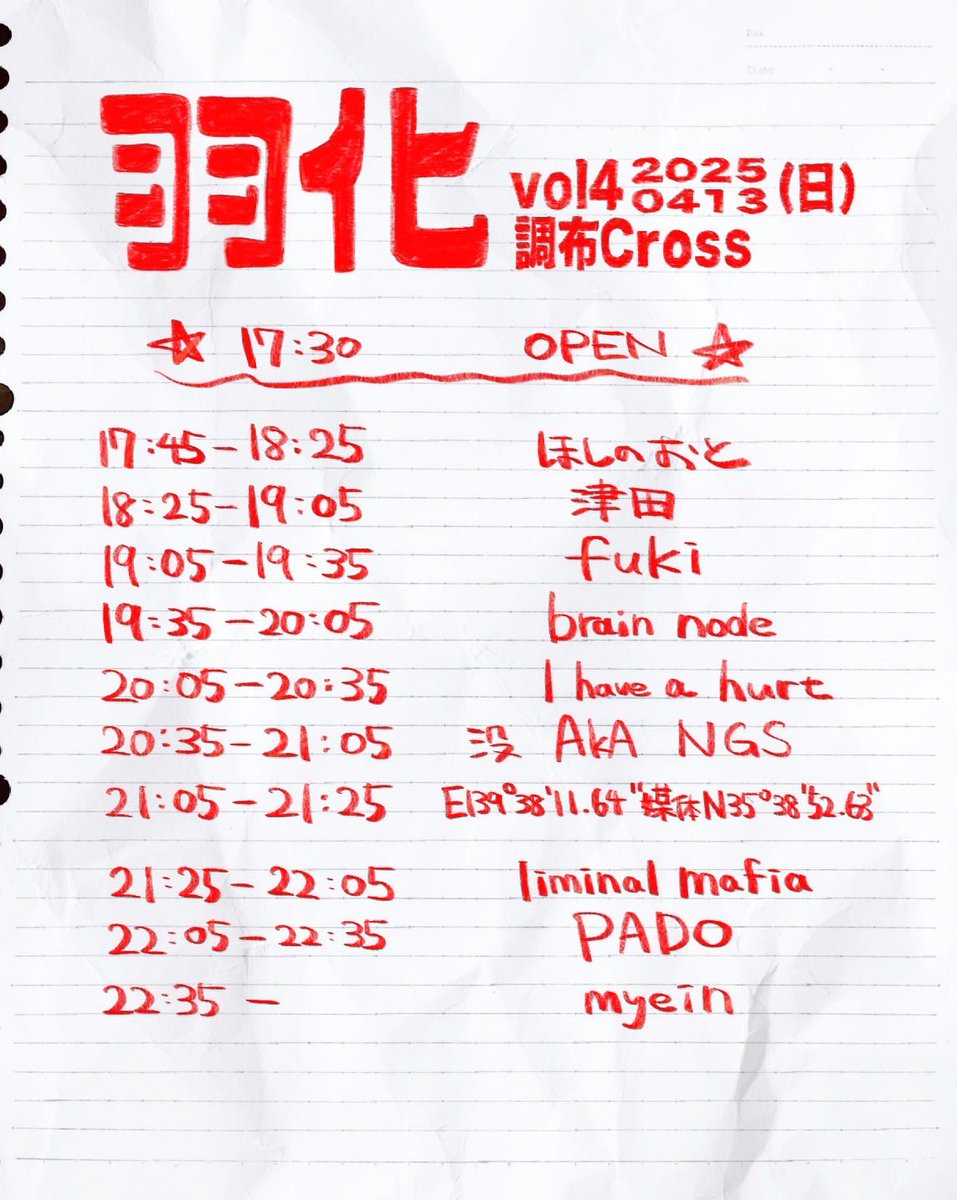 羽化 vol4 2025 0413 (日)
調布Cross
☆ 17:30 OPEN ☆
17:45-18:25 ほしのおと
18:25-19:05 津田
19:05-19:35 fuki
19:35-20:05 brain node
20:05-20:35 I have a hurt
20:35-21:05 没 AkA NGS
21:05-21:25 E139°38'11.64"媒体N35°38'52.63"
21:25-22:05 liminal mafia
22:05-22:35 PADO
22:35 - myein